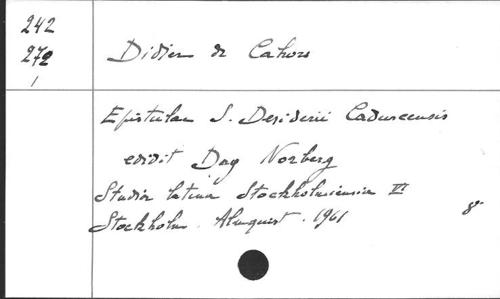 242
272
/
Didier de Cahors
Epistulae S. Desiderii Cadurcensis
edidit Dag Norberg
Studia latina Stockholmiensia VI
Stockholm. Almquist. 1961
8°